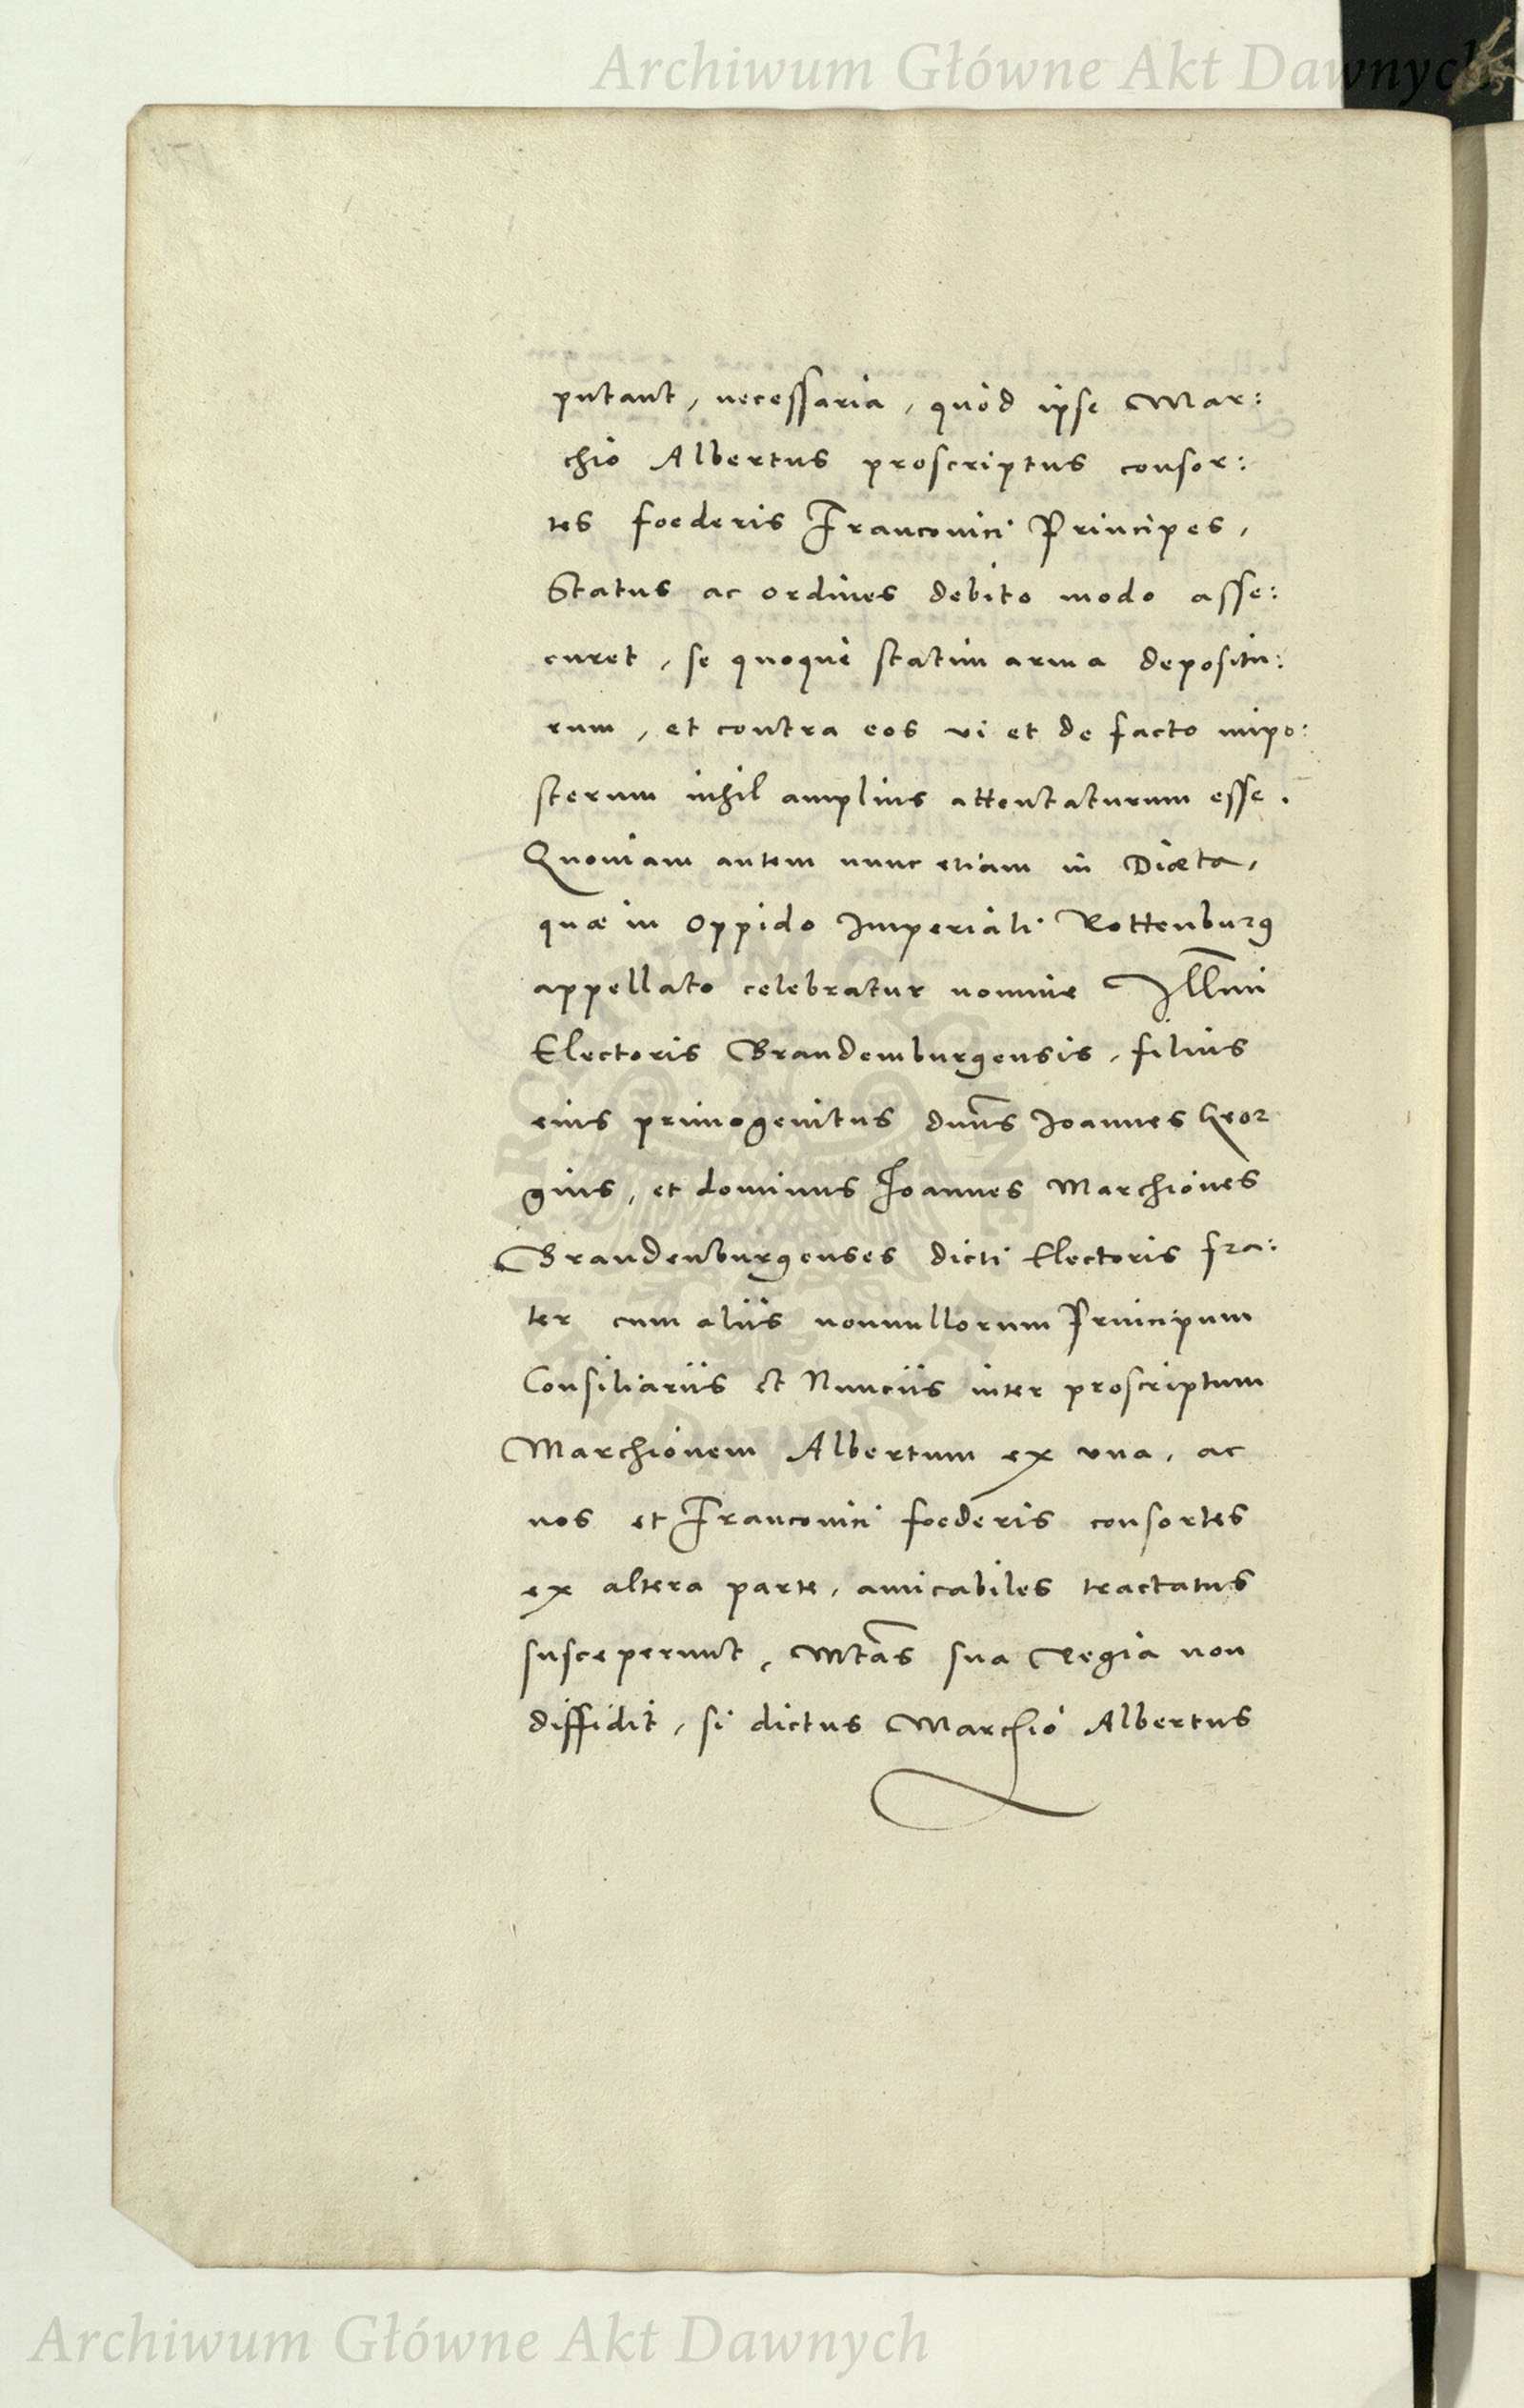 Archiwum Główne Akt Dawnych
putant, necessaria, quòd ipse Mar:
chio Albertus proscriptus consor:
tes foederis Franconici Principes,
Status ac ordines debito modo asse:
curet, se quoque statim arma depositu:
rum, et contra eos vi et de facto impo:
sterum nihil amplius attentaturum esse.
Quoniam autem nunc etiam in Diæta,
quæ in oppido Imperiali Rottenburg
appellato celebratur nomine Illmi
Electoris Brandemburgensis, filius
eius primogenitus dnus Joannes Geor
gius, et dominus Joannes Marchiones
Brandenburgenses dicti Electoris fra:
ter cum aliis nonnullorum Principum
Consiliariis et Nunciis inter proscriptum
Marchionem Albertum ex vna, ac
nos et Franconici foederis consortes
ex altera parte, amicabiles tractatus
susceperunt, Mtas sua Regia non
diffidit, si dictus Marchio Albertus
Archiwum Główne Akt Dawnych